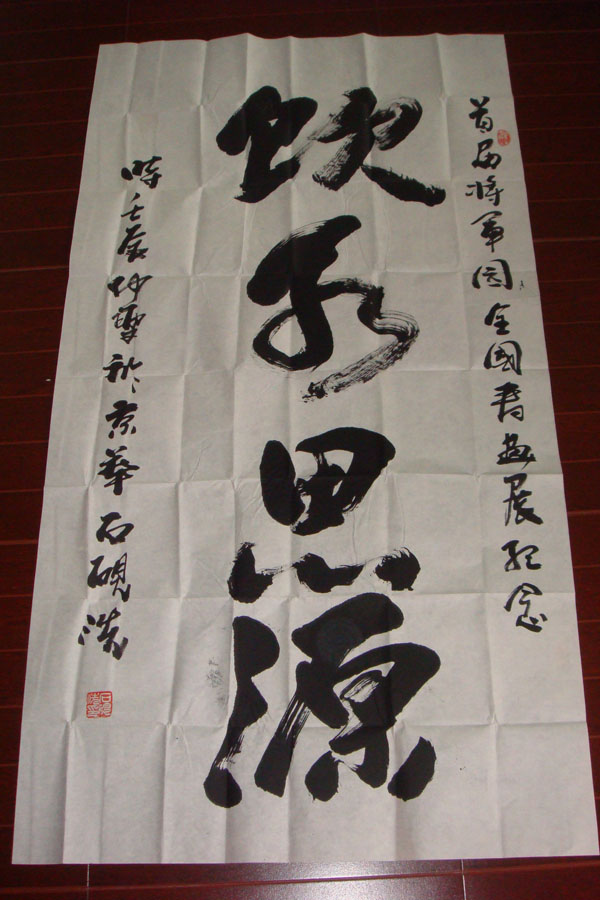 首届将军园全国书画展纪念
饮水思源
時壬辰仲夏於京華石砚